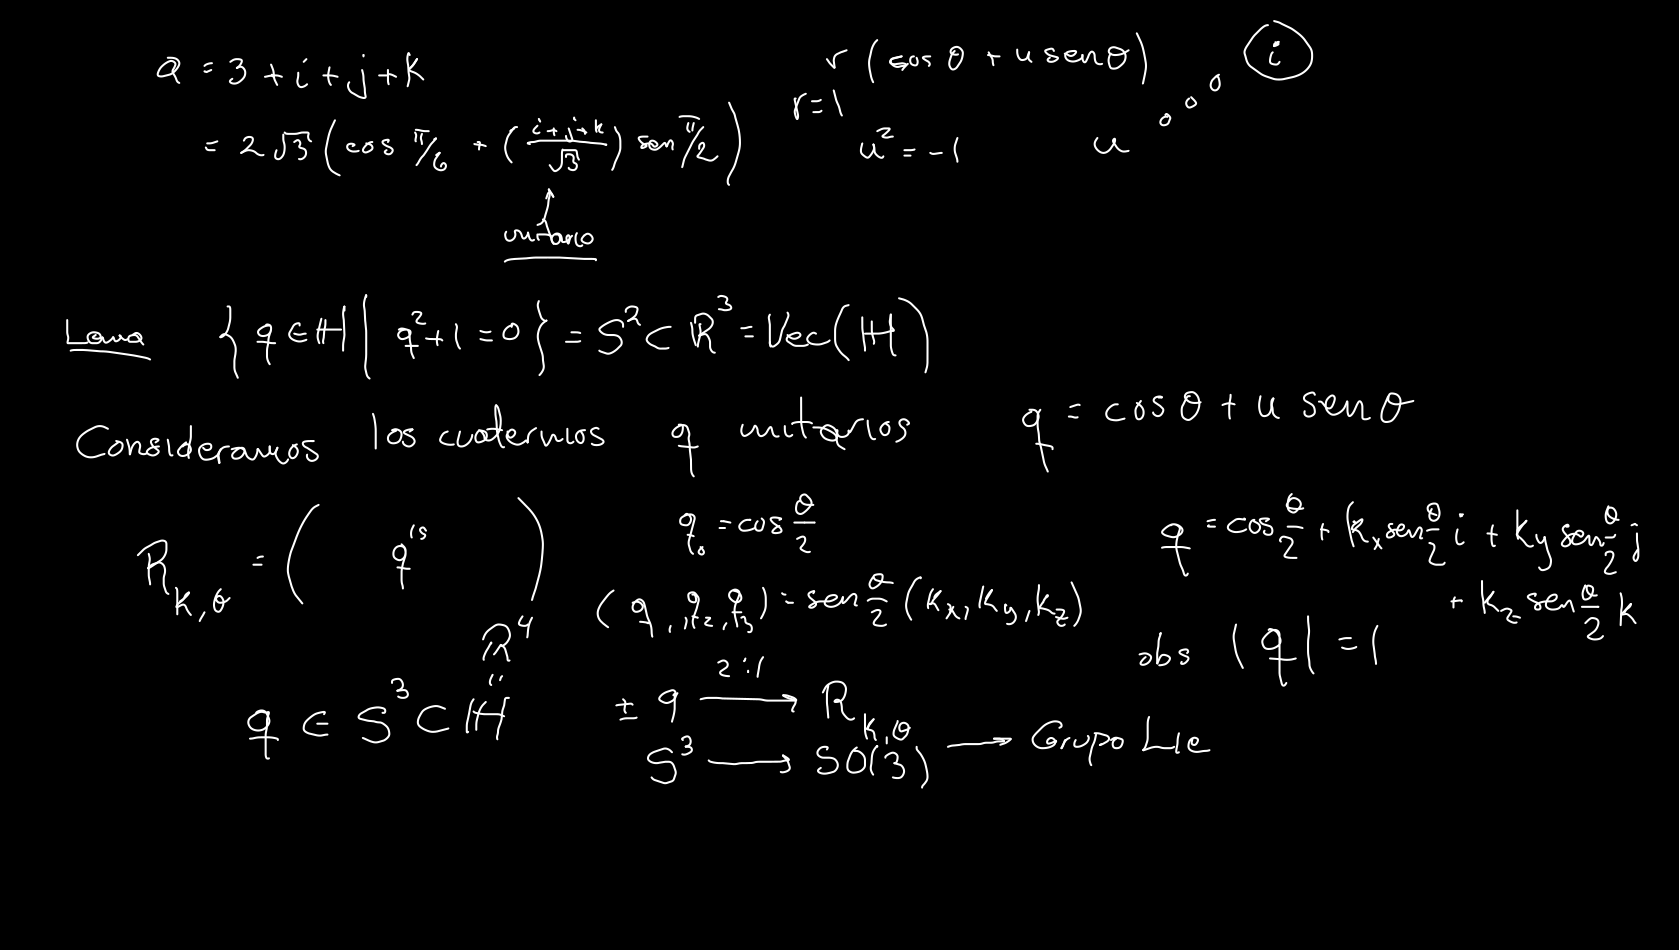 a = 3 + i + j + k
= 2√3 (cos π/6 + ((i+j+k)/√3) sen π/2)
unitario
r (cos θ + u sen θ)
r = 1
u² = -1
u ∘ ∘ ∘ i
Lema { q ∈ ℍ | q² + 1 = 0 } = S² ⊂ ℝ³ = Vec(ℍ)
Consideramos los cuaternios q unitarios q = cos θ + u sen θ
R_{k,θ} = ( q's )
q₀ = cos θ/2
(q₁, q₂, q₃) = sen θ/2 (kx, ky, kz)
q = cos θ/2 + kx sen θ/2 i + ky sen θ/2 j
+ kz sen θ/2 k
obs |q| = 1
ℝ⁴
"
q ∈ S³ ⊂ ℍ
2:1
± q → R_{k,θ}
S³ → SO(3) → Grupo Lie